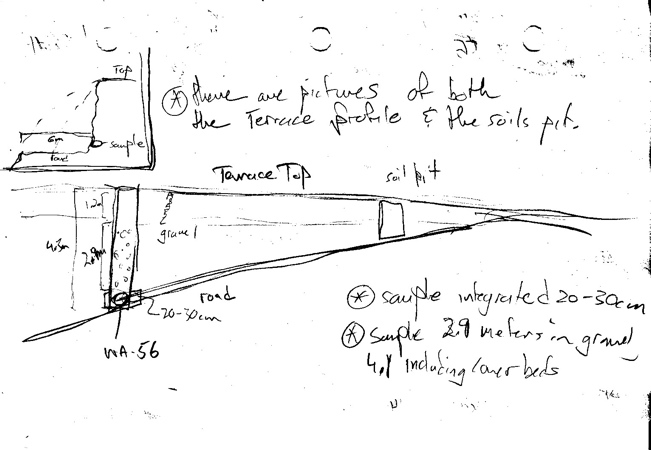 Top
sample
6m
road
* there are pictures of both
the Terrace profile & the soils pit.
Terrace Top
soil pit
gravel
4.3m
2.9m
road
20-30cm
WA-56
* sample integrated 20-30cm
* sample 2.9 meters in gravel
4.1 including lower beds